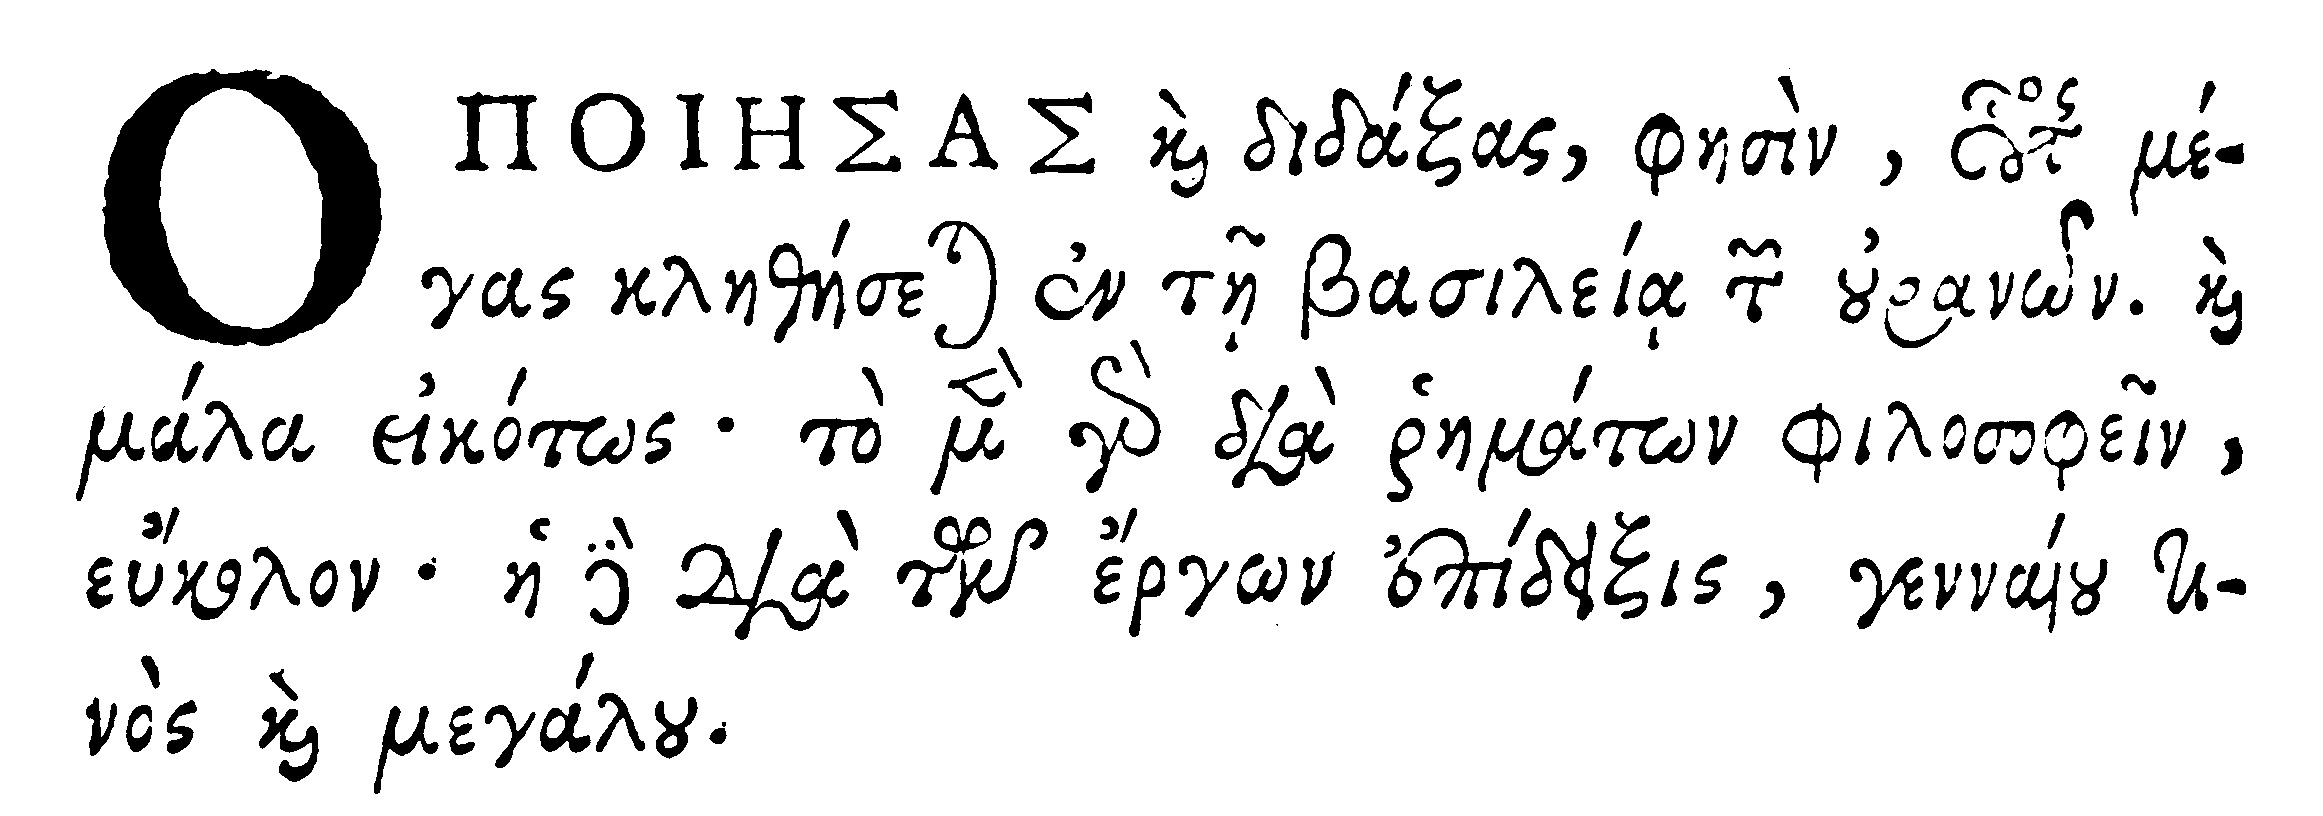 Ο ΠΟΙΗΣΑΣ ϗ̀ διδάξας, φησὶν, οὗτος μέ-
γας κληθήσεται ἐν τῇ βασιλείᾳ τῶν ȣ̓ρανῶν. ϗ̀
μάλα εἰκότως· τὸ μὲν γὰρ διὰ ῥημάτων φιλοσοφεῖν,
εὔκολον· ἡ δὲ διὰ τῶν ἔργων ἐπίδειξις, γενναίȣ τι-
νὸς ϗ̀ μεγάλȣ.